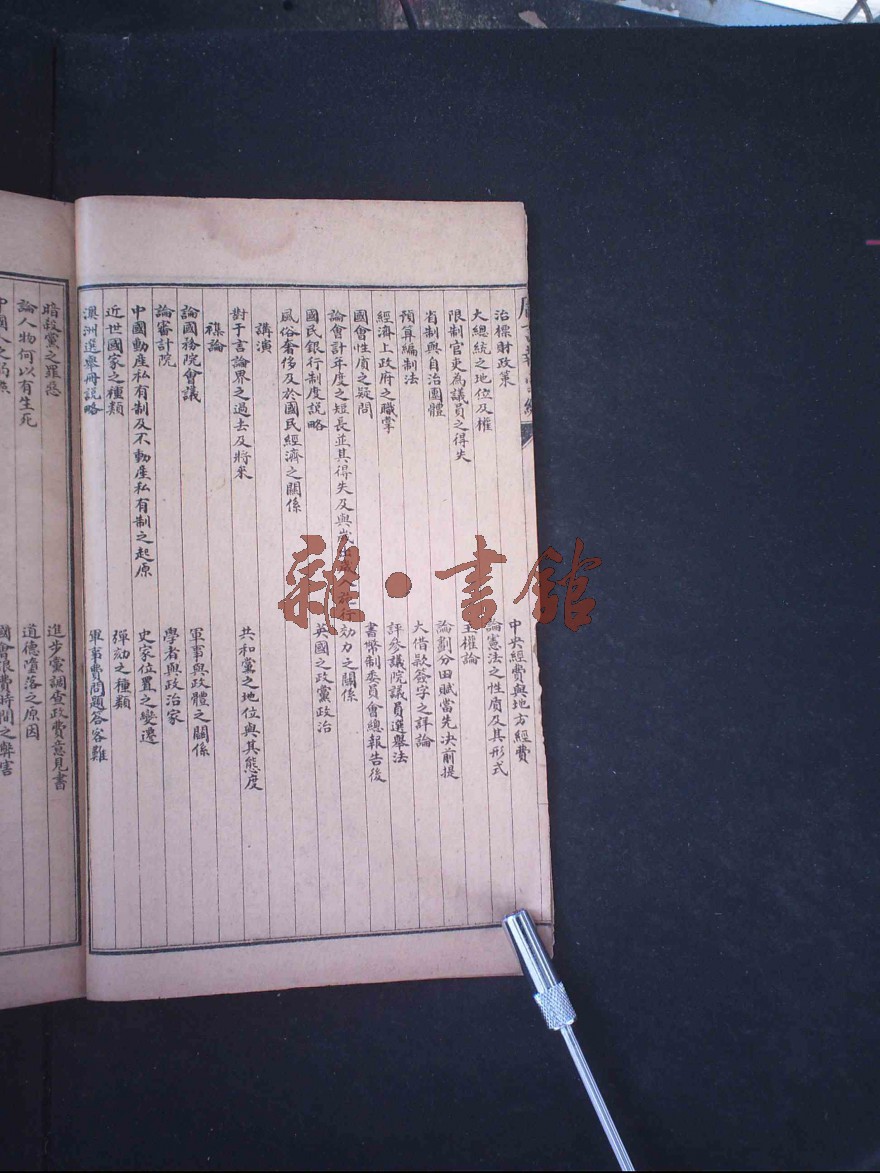 治標財政策 中央經費與地方經費
大總統之地位及權 論憲法之性質及其形式
限制官吏為議員之得失 主權論
省制與自治團體 論劃分田賦當先決前提
預算編制法 大借款簽字之詳論
經濟上政府之職掌 評參議院議員選舉法
國會性質之疑問 書幣制委員會總報告後
論會計年度之短長並其得失及與歲出 效力之關係
國民銀行制度說略 英國之政黨政治
風俗奢侈及於國民經濟之關係
講演
對于言論界之過去及將來 共和黨之地位與其態度
襍論
論國務院會議 軍事與政體之關係
論審計院 學者與政治家
中國動產私有制及不動產私有制之起原 史家位置之變遷
近世國家之種類 彈劾之種類
澳洲選舉冊說略 軍事費問題答客難
暗政黨之罪惡 進步黨調查政費意見書
論人物何以有生死 道德墮落之原因
國會浪費時間之弊害
雜·書館